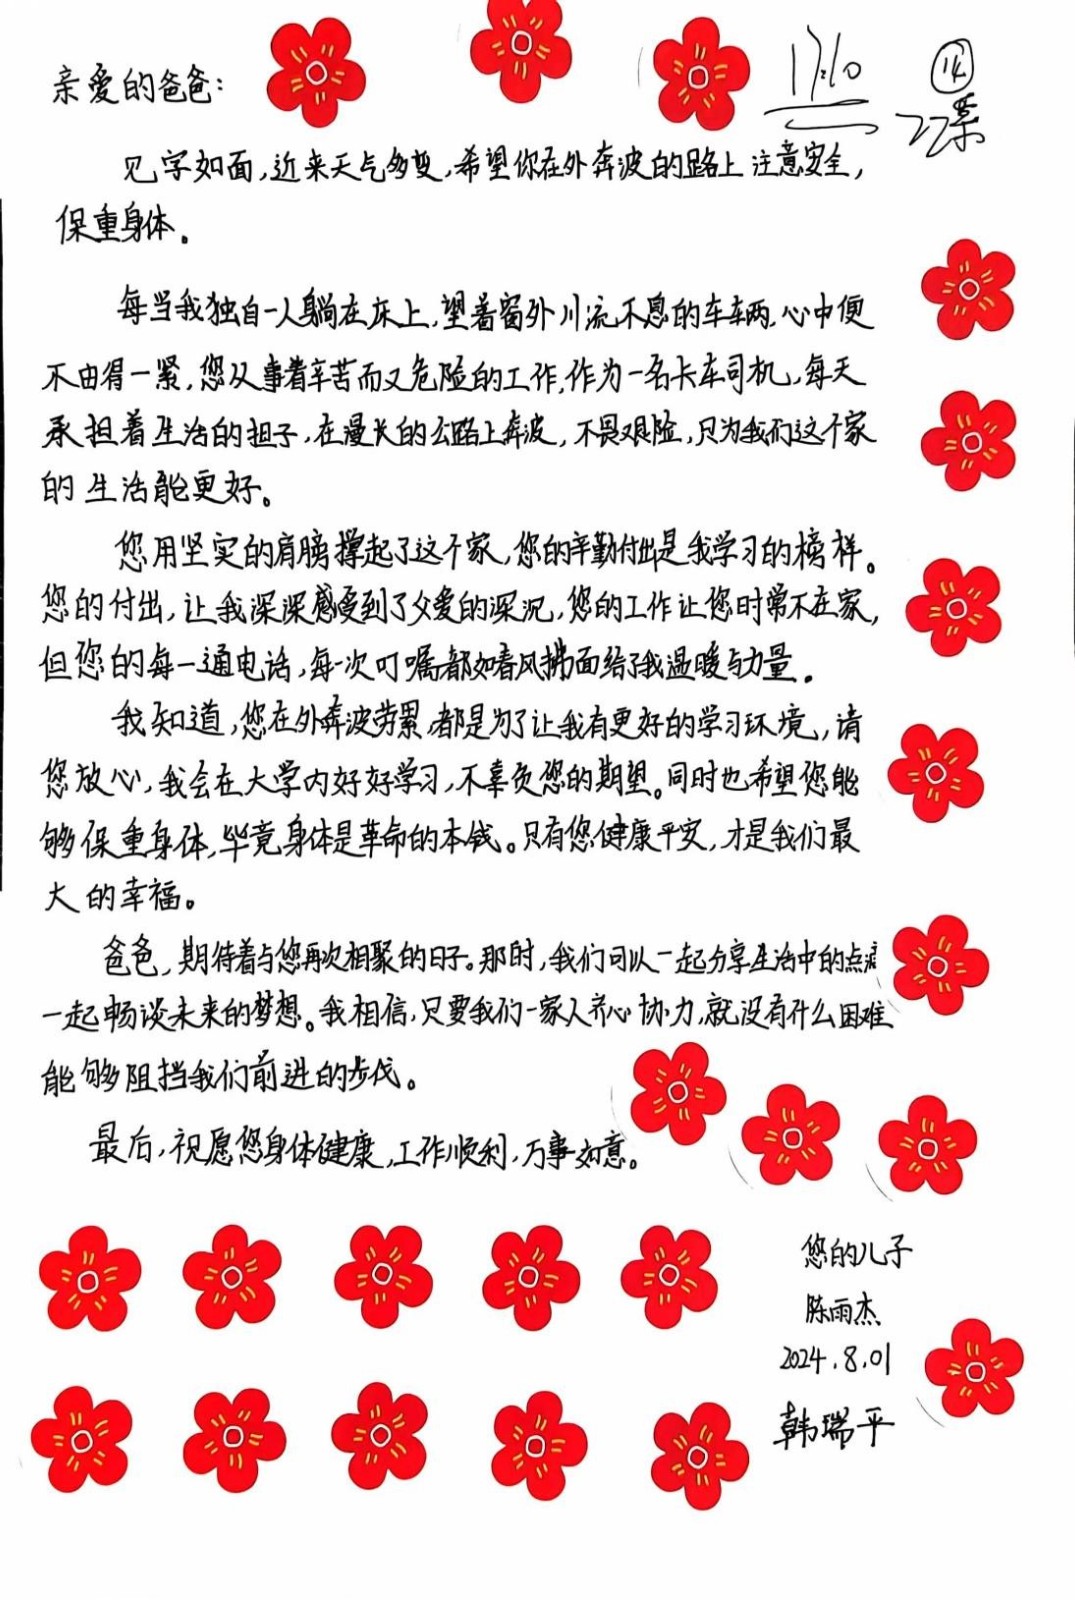 亲爱的爸爸：
17:10
见字如面，近来天气多变，希望你在外奔波的路上注意安全，
保重身体。
每当我独自一人躺在床上，望着窗外川流不息的车辆，心中便
不由得一紧，您从事着辛苦而又危险的工作，作为一名卡车司机，每天
承担着生活的担子，在漫长的公路上奔波，不畏艰险，只为我们这个家
的生活能更好。
您用坚实的肩膀撑起了这个家，您的辛勤付出是我学习的榜样。
您的付出，让我深深感受到了父爱的深沉，您的工作让您时常不在家，
但您的每一通电话，每一次叮嘱都如春风拂面给了我温暖与力量。
我知道，您在外奔波劳累，都是为了让我有更好的学习环境，请
您放心，我会在大学内好好学习，不辜负您的期望。同时也希望您能
够保重身体，毕竟身体是革命的本钱。只有您健康平安，才是我们最
大的幸福。
爸爸，期待着与您再次相聚的日子。那时，我们可以一起分享生活中的点
一起畅谈未来的梦想。我相信，只要我们一家人齐心协力，就没有什么困难
能够阻挡我们前进的步伐。
最后，祝愿您身体健康，工作顺利，万事如意。
您的儿子
陈雨杰
2024.8.01
韩瑞平